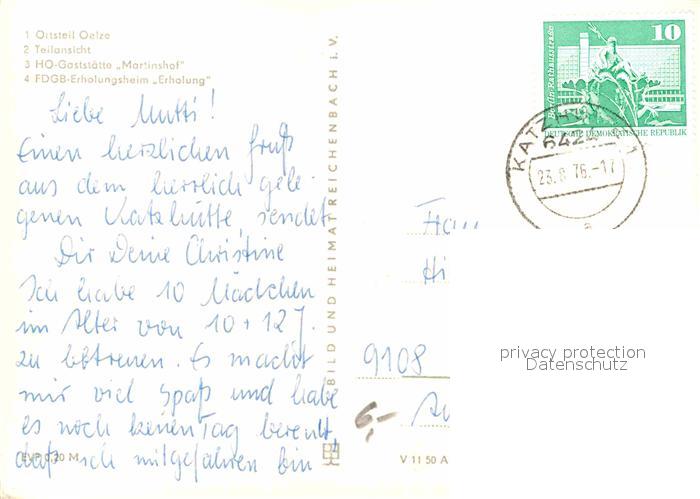 1 Ortsteil Oelze
2 Teilansicht
3 HO-Gaststätte „Martinshof"
4 FDGB-Erholungsheim „Erholung"
Liebe Mutti!
Einen herzlichen Gruß
aus dem herrlich gele-
genen Katzhütte, sendet
Dir Deine Christine
Ich habe 10 Mädchen
im Alter von 10+12 J.
zu betreuen. Es macht
mir viel Spaß und habe
es noch keinen Tag bereut,
daß ich mitgefahren bin!
EVP 0,20 M
BILD UND HEIMAT REICHENBACH i. V.
V 11 50 A
10
Berlin, Rathausstraße
DEUTSCHE DEMOKRATISCHE REPUBLIK
6422
23.8.76.-17
a
9108
6,-
privacy protection
Datenschutz